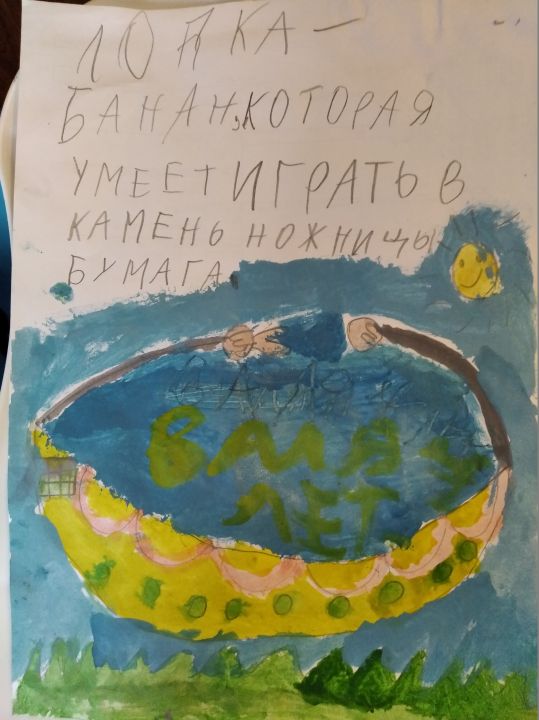 ЛОДКА –
БАНАН,КОТОРАЯ
УМЕЕТ ИГРАТЬ В
КАМЕНЬ НОЖНИЦЫ
БУМАГА
ВАЛЯ
ЛЕТ